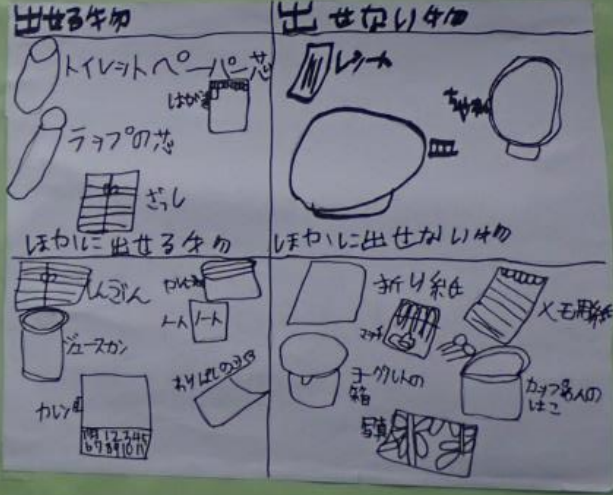 出せる物
トイレットペーパー芯
はがき
ラップの芯
ざっし
ほかに出せる物
しんぶん
ノート
ノート
ジュースカン
カレンダ
1月 12345
67891011
出せない物
レシート
ちゃわん
ほかに出せない物
折り紙
メモ用紙
マッチ
ヨーグルトの
箱
カップ
はこ
写真